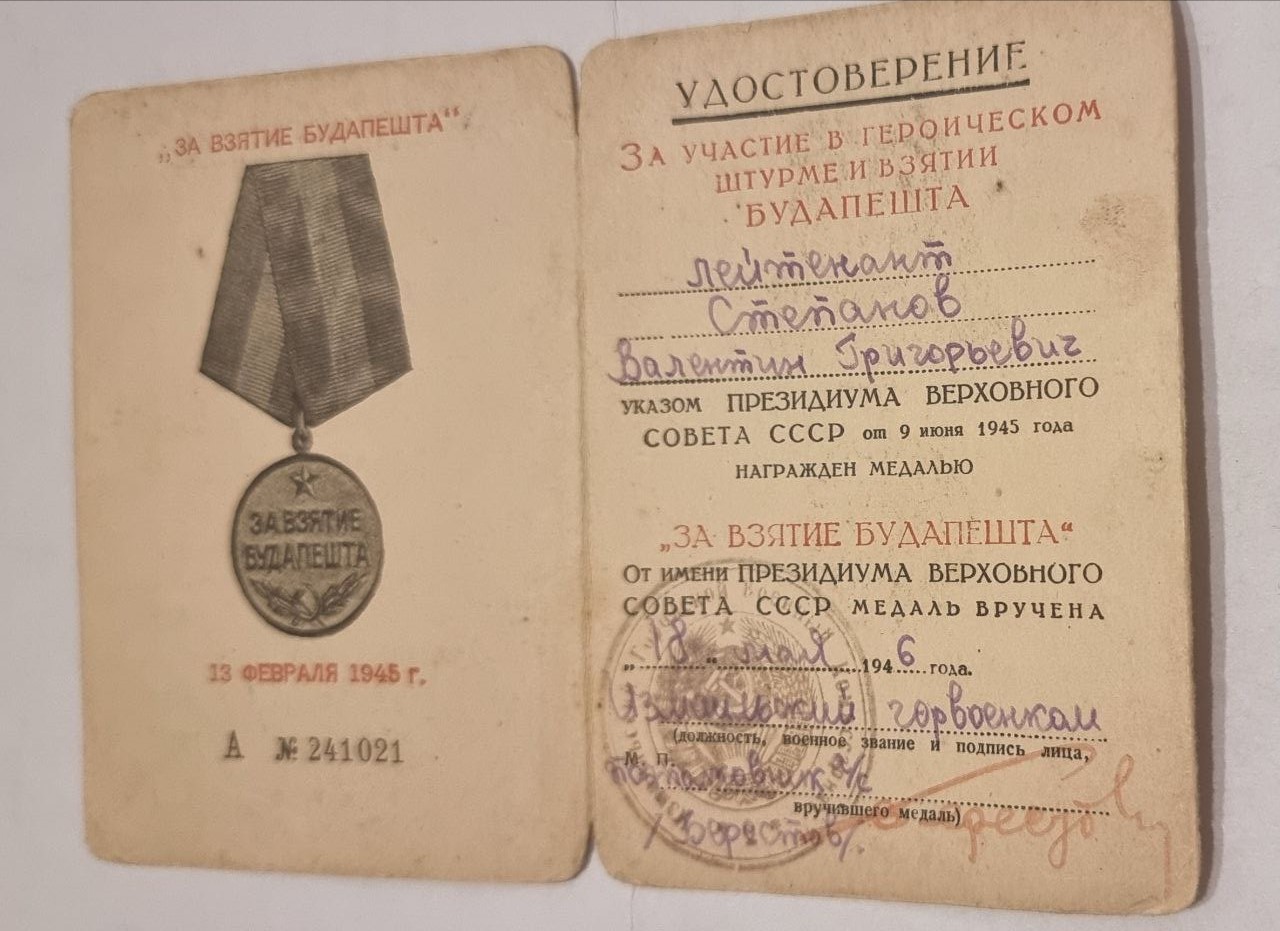 „ЗА ВЗЯТИЕ БУДАПЕШТА“
ЗА ВЗЯТИЕ
БУДАПЕШТА
13 ФЕВРАЛЯ 1945 г.
А № 241021
УДОСТОВЕРЕНИЕ
ЗА УЧАСТИЕ В ГЕРОИЧЕСКОМ
ШТУРМЕ И ВЗЯТИИ
БУДАПЕШТА
лейтенант
Степанов
Валентин Григорьевич
УКАЗОМ ПРЕЗИДИУМА ВЕРХОВНОГО
СОВЕТА СССР от 9 июня 1945 года
НАГРАЖДЕН МЕДАЛЬЮ
„ЗА ВЗЯТИЕ БУДАПЕШТА“
От имени ПРЕЗИДИУМА ВЕРХОВНОГО
СОВЕТА СССР МЕДАЛЬ ВРУЧЕНА
„18„ мая 1946 года.
Измаильский горвоенком
(должность, военное звание и подпись лица,
М. П.
подполковник а/с
вручившего медаль)
/Берестов/.